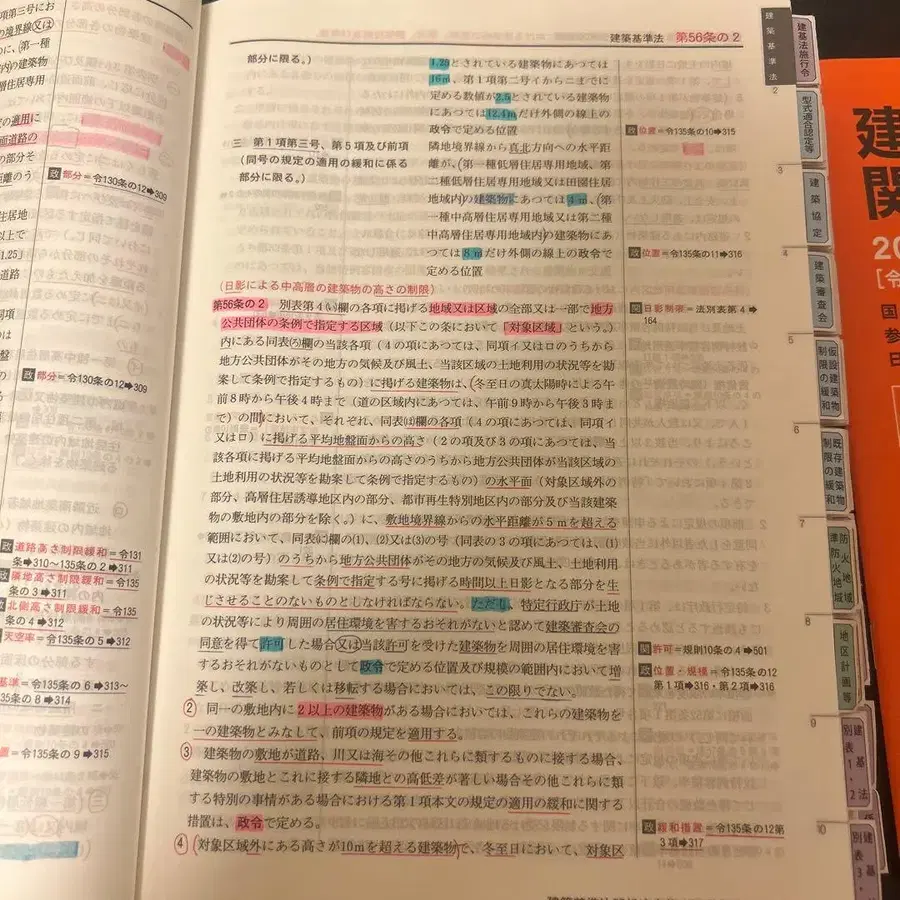 建築基準法 第56条の2
部分に限る。)
1.25とされている建築物にあつては
16m、第1項第二号イからニまでに
定める数値が2.5とされている建築物
にあつては12.4mだけ外側の線上の
政令で定める位置
政 位置=令135条の10➡315
三 第1項第三号、第5項及び前項
(同号の規定の適用の緩和に係る
部分に限る。)
隣地境界線から真北方向への水平距
離が、(第一種低層住居専用地域、第
二種低層住居専用地域又は田園住居
地域内)の建築物にあつては4m、(第
一種中高層住居専用地域又は第二種
中高層住居専用地域内)の建築物にあ
つては8mだけ外側の線上の政令で
定める位置
政 位置=令135条の11➡316
(日影による中高層の建築物の高さの制限)
第56条の2 別表第4(い)欄の各項に掲げる地域又は区域の全部又は一部で地方
公共団体の条例で指定する区域(以下この条において「対象区域」という。)
内にある同表(ろ)欄の当該各項(4の項にあつては、同項イ又はロのうちから
地方公共団体がその地方の気候及び風土、当該区域の土地利用の状況等を勘
案して条例で指定するもの)に掲げる建築物は、(冬至日の真太陽時による午
前8時から午後4時まで(道の区域内にあつては、午前9時から午後3時ま
で)の間)において、それぞれ、同表(は)欄の各項(4の項にあつては、同項イ
又はロ)に掲げる平均地盤面からの高さ(2の項及び3の項にあつては、当
該各項に掲げる平均地盤面からの高さのうちから地方公共団体が当該区域の
土地利用の状況等を勘案して条例で指定するもの)の水平面(対象区域外の
部分、高層住居誘導地区内の部分、都市再生特別地区内の部分及び当該建築
物の敷地内の部分を除く。)に、敷地境界線からの水平距離が5mを超える
範囲において、同表(に)欄の(1)、(2)又は(3)の号(同表の3の項にあつては、(1)
又は(2)の号)のうちから地方公共団体がその地方の気候及び風土、土地利用
の状況等を勘案して条例で指定する号に掲げる時間以上日影となる部分を生
じさせることのないものとしなければならない。ただし、特定行政庁が土地
の状況等により周囲の居住環境を害するおそれがないと認めて建築審査会の
同意を得て許可した場合又は当該許可を受けた建築物を周囲の居住環境を害
するおそれがないものとして政令で定める位置及び規模の範囲内において増
築し、改築し、若しくは移転する場合においては、この限りでない。
関 日影制限=法別表第4➡
164
関 許可=規則10条の4➡501
政 位置・規模=令135条の12
第1項➡316・第2項➡316
② 同一の敷地内に2以上の建築物がある場合においては、これらの建築物を
一の建築物とみなして、前項の規定を適用する。
③ 建築物の敷地が道路、川又は海その他これらに類するものに接する場合、
建築物の敷地とこれに接する隣地との高低差が著しい場合その他これらに類
する特別の事情がある場合における第1項本文の規定の適用の緩和に関する
措置は、政令で定める。
政 緩和措置=令135条の12第
3項➡317
④ (対象区域外にある高さが10mを超える建築物)で、冬至日において、対象区
項第三号にお
の境界線又は
に、(第一種
内)の建築物
層住居専用
の適用に
面道路の
の部分そ
距離のう
政 部分=令130条の12➡309
住居地
以上で
1.25」
道路
政 部分=令130条の12➡309
政 道路高さ制限緩和=令131
条➡310~135条の2➡311
政 隣地高さ制限緩和=令135
条の3➡311
政 北側高さ制限緩和=令135
条の4➡312
天空率=令135条の5➡312
基準=令135条の6➡313~
135条の8➡314
置=令135条の9➡315
建築基準法
建基法施行令
2
型式適合認定等
3
建築協定
4
建築審査会
5
仮設建築物
制限の緩和
6
既存建築物
制限の緩和
7
防火地域
準防火地域
8
地区計画等
9
建基法
別表1・2
10
建基
別表3・
建
関
20
[令
国
参
日